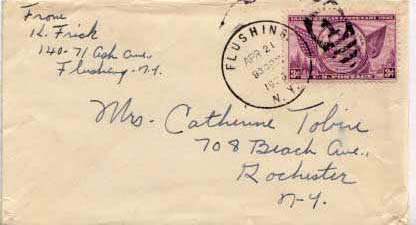 From
K. Frick
140-71 Ash Ave.,
Flushing - N.Y.
FLUSHING
APR 21
N.Y.
3¢ U.S. POSTAGE 3¢
Mrs. Catherine Tobine
708 Beach Ave.,
Rochester
N-Y.